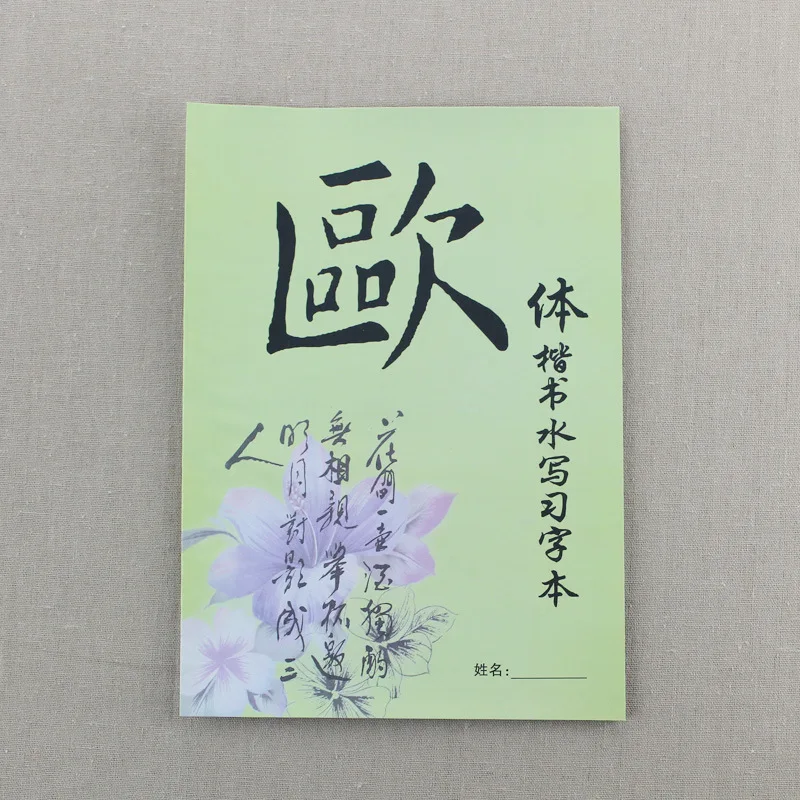 歐
体楷书水写习字本
花間一壺酒獨酌
無相親舉杯邀
明月對影成三
人
姓名: